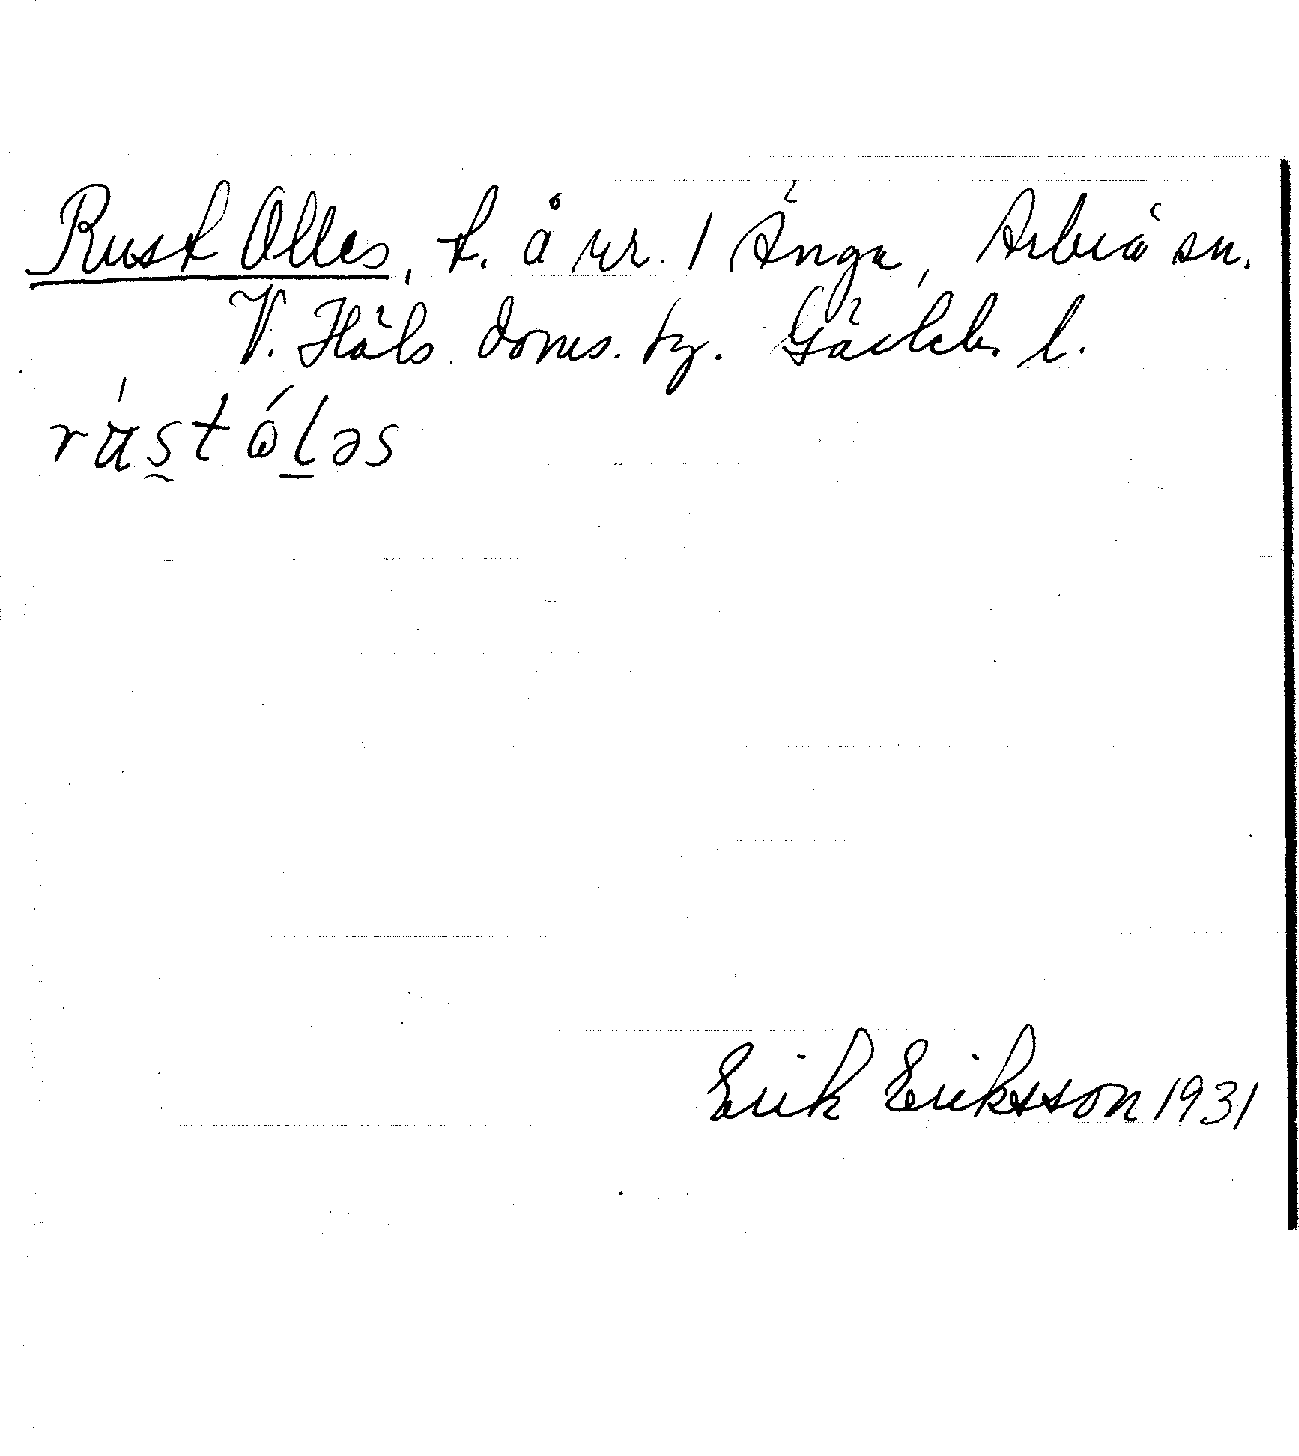 Rust Olles, t. å nr. 1 Änga, Arbrå sn.
V. Häls. doms. tg. Gävleb. l.
rα̈́s̰tω̇́l̠əs
Erik Eriksson 1931